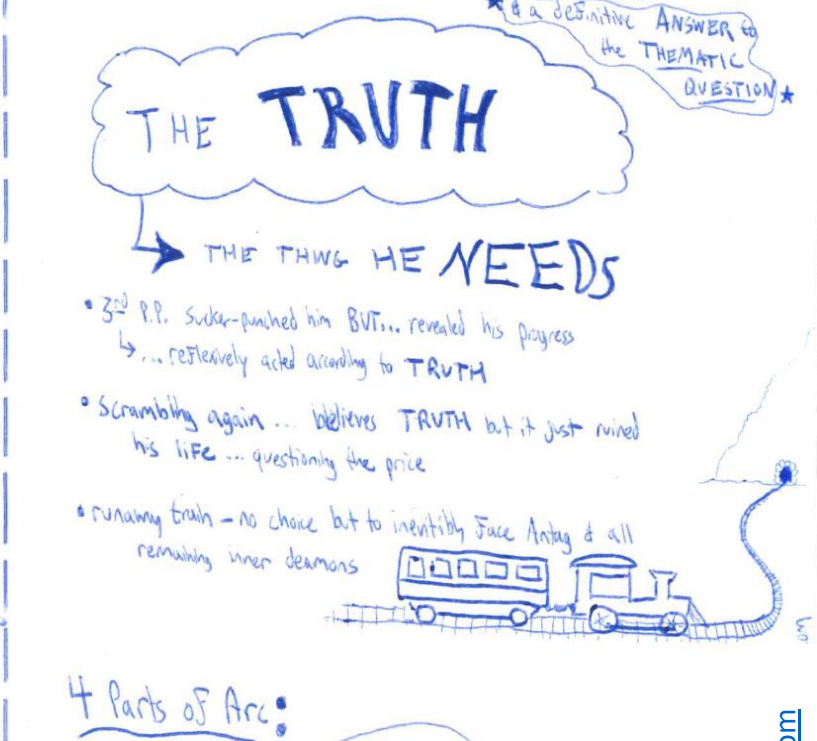 & a definitive ANSWER to
the THEMATIC
QUESTION
THE TRUTH
THE THING HE NEEDS
• 3rd P.P. sucker-punched him BUT... revealed his progress
... reflexively acted according to TRUTH
• Scrambling again ... believes TRUTH but it just ruined
his life ... questioning the price
• runaway train – no choice but to inevitibly Face Antag & all
remaining inner deamons
4 Parts of Arc:
om